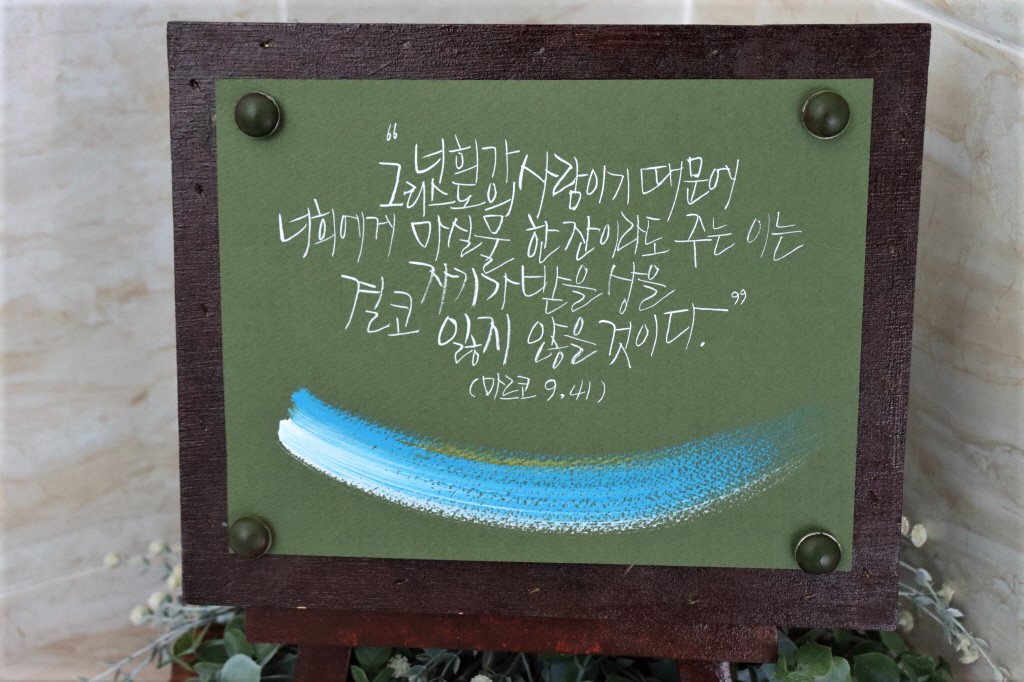 “너희가
그리스도의 사람이기 때문에
너희에게 마실물 한 잔이라도 주는 이는
결코 자기가 받을 상을
잃지 않을 것이다.”
(마르코 9.41)